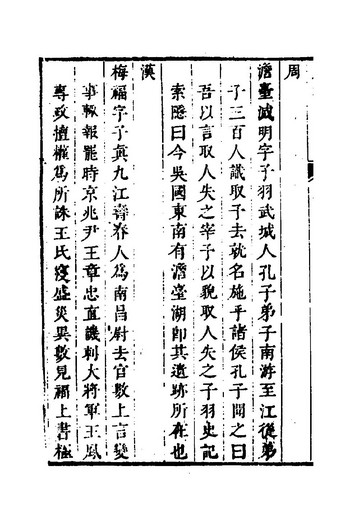 周
澹臺滅明字子羽武城人孔子弟子南游至江從弟
子三百人設取予去就名施乎諸侯孔子聞之曰
吾以言取人失之宰予以貌取人失之子羽史記
索隱曰今吳國東南有澹臺湖即其遺跡所在也
漢
梅福字子真九江壽春人為南昌尉去官數上言變
事輙報罷時京兆尹王章忠直譏刺大將軍王鳳
專政擅權為所誅王氏寖盛災異數見福上書極